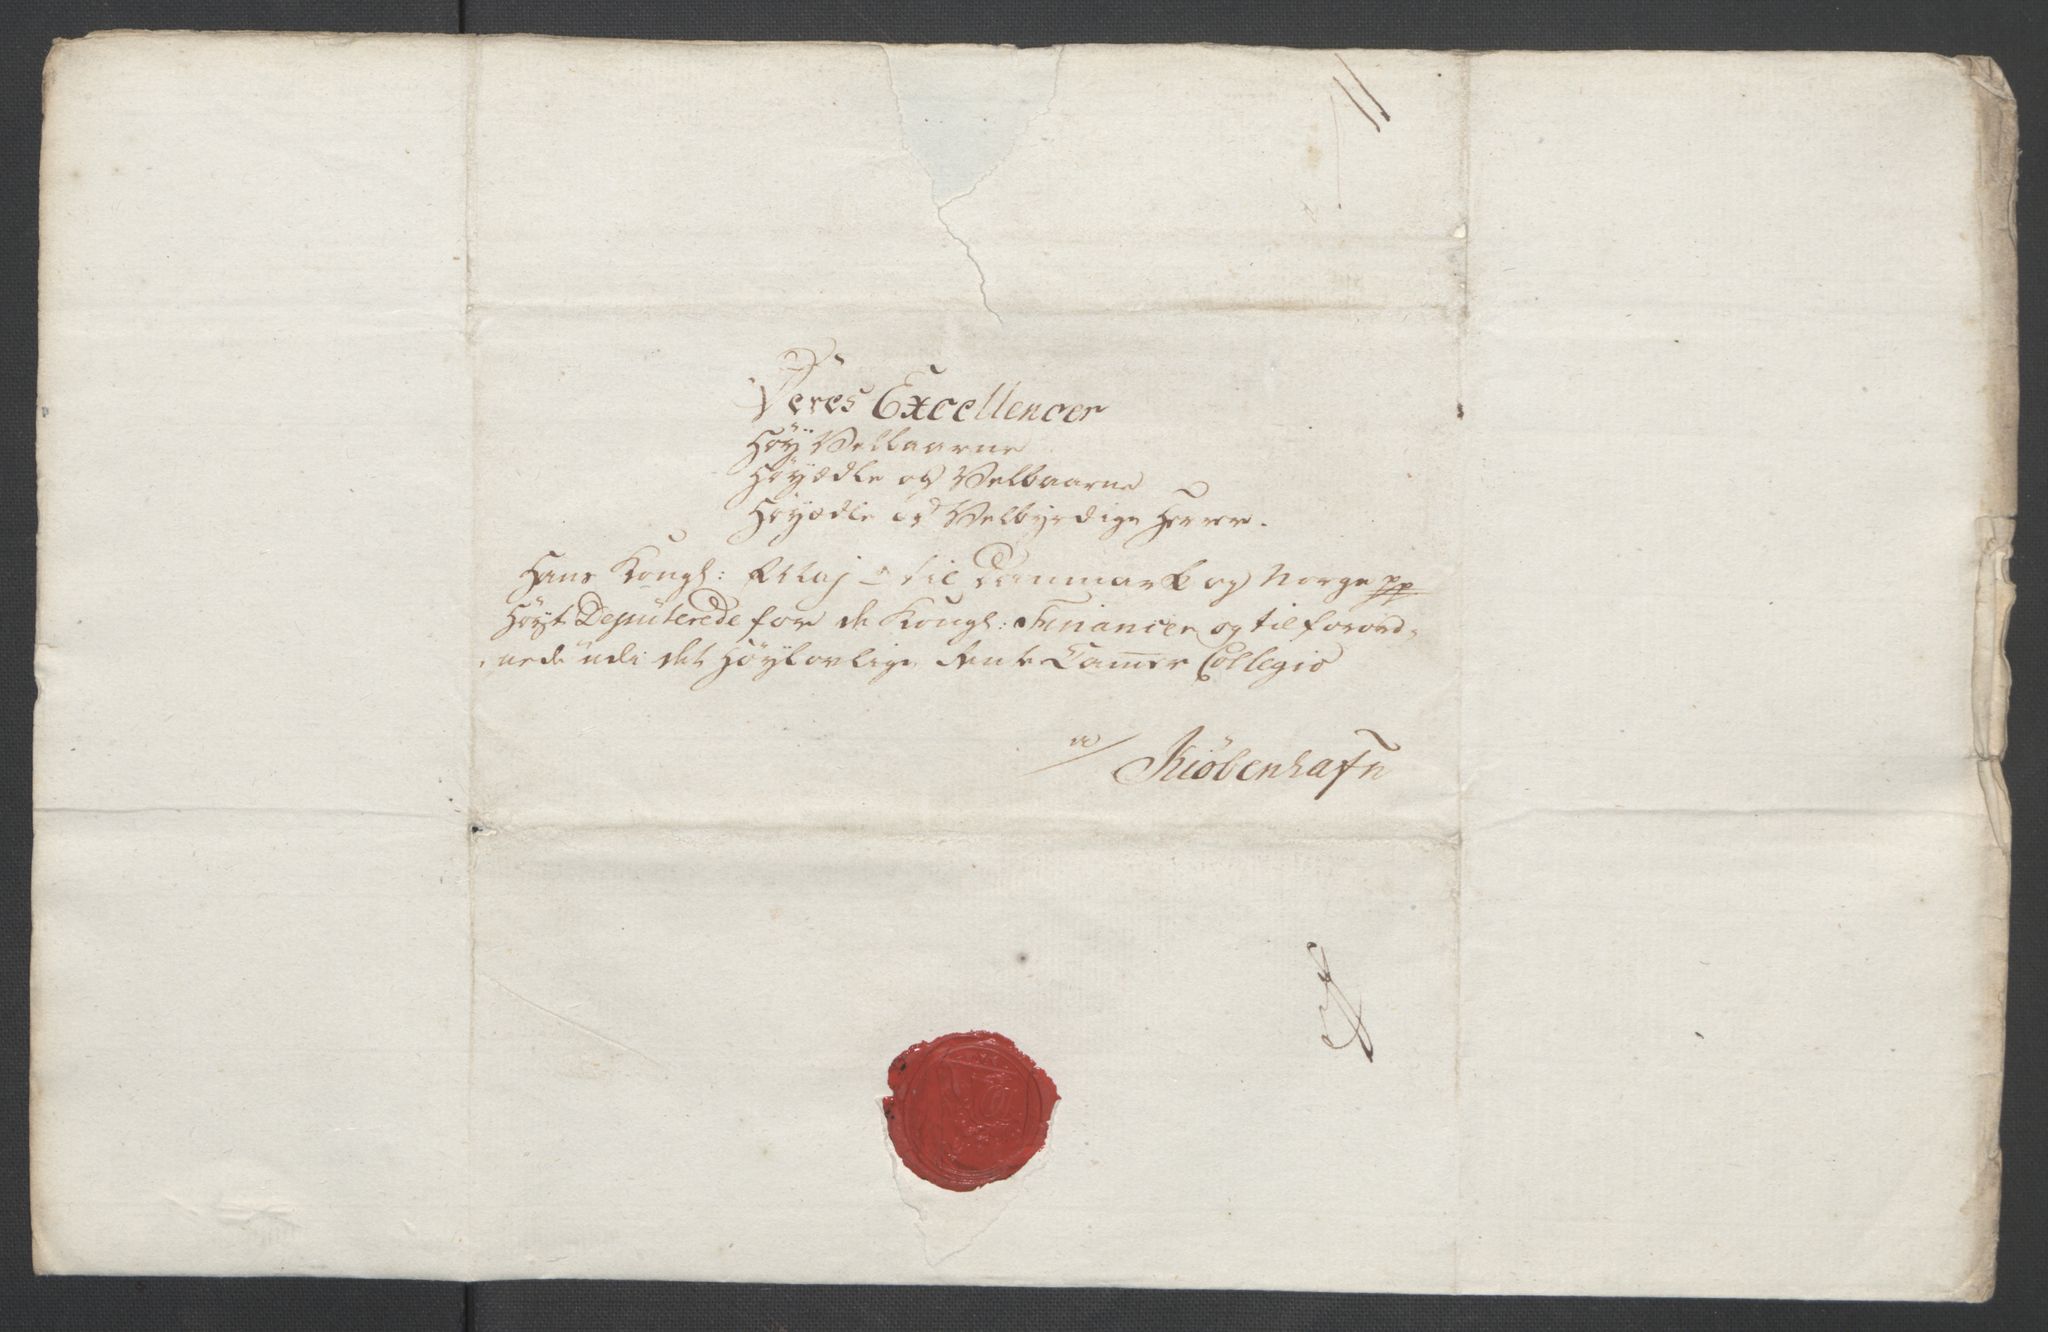 Deres Excellencer
Höy Velbaarne
Höyædle og Velbaarne
Höyædle og Velbyrdige Herrer.
Hans Kongl: May:ts til Danmark og Norge pp
Höyt Deputerede for de Kongl: Financer og tilforord-
-nede udi det Höylovlige Rente Camer Collegio
a/ Kiöbenhafn